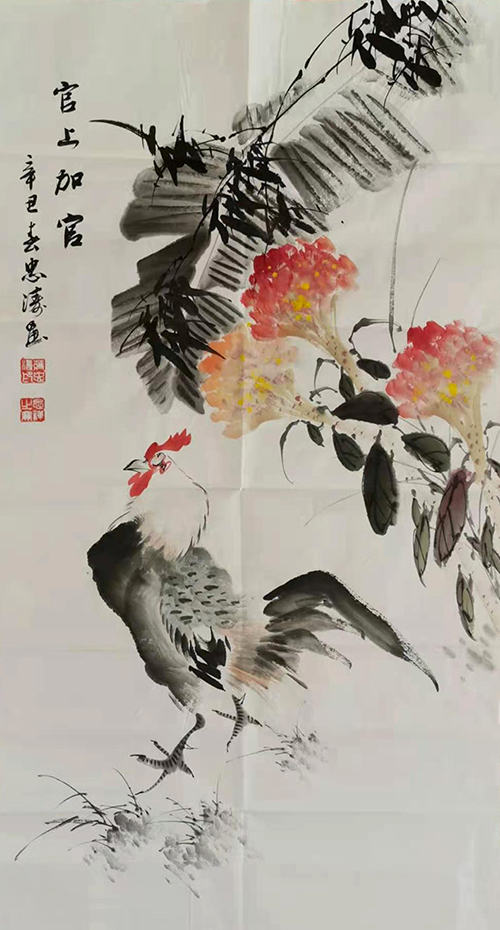 官上加官
辛丑春忠涛画